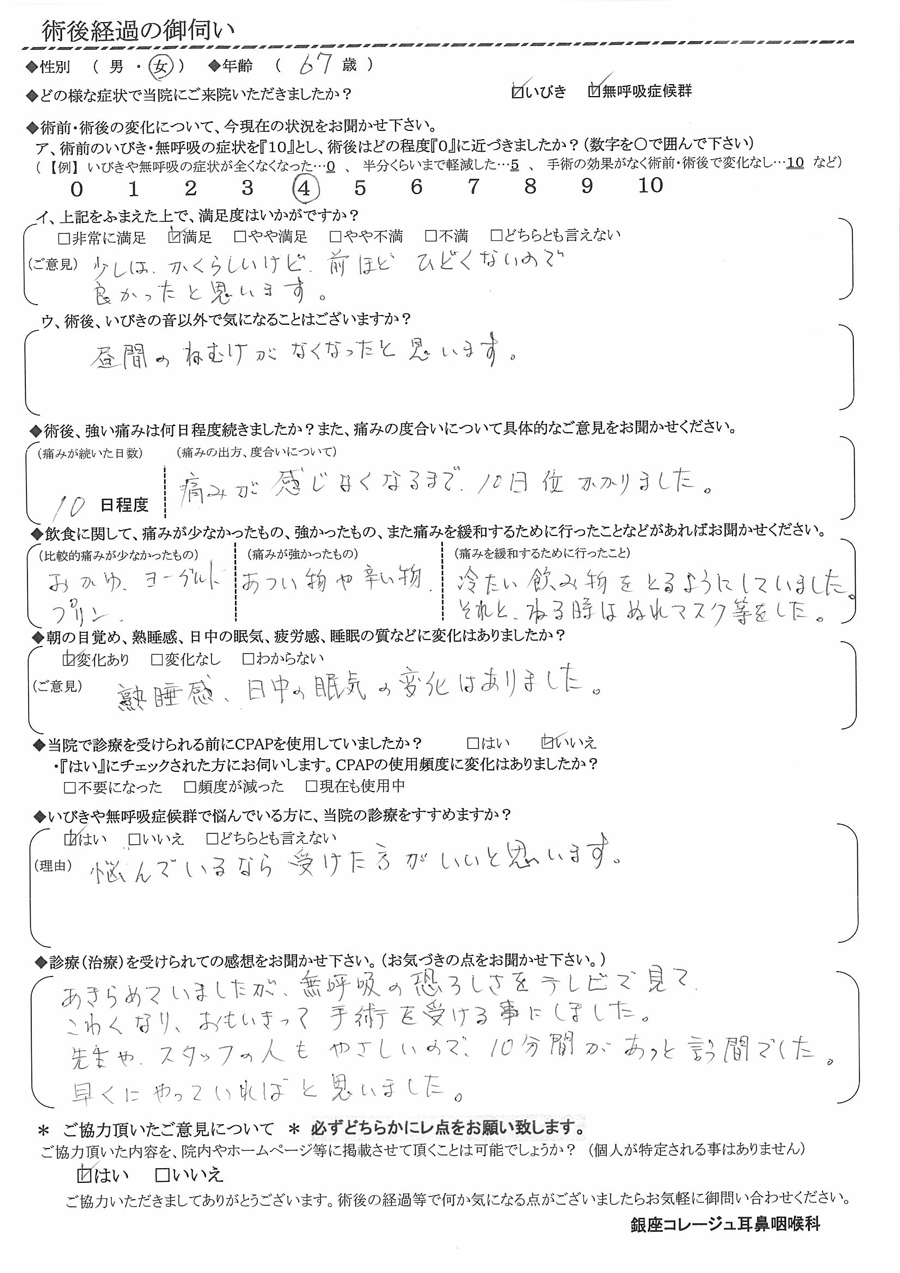 術後経過の御伺い
◆性別 ( 男 ・ 女 ) ◆年齢 ( 67 歳 )
◆どの様な症状で当院にご来院いただきましたか? ☑いびき ☑無呼吸症候群
◆術前・術後の変化について、今現在の状況をお聞かせ下さい。
ア、術前のいびき・無呼吸の症状を『10』とし、術後はどの程度『0』に近づきましたか?(数字を○で囲んで下さい)
(【例】いびきや無呼吸の症状が全くなくなった…0 、 半分くらいまで軽減した…5 、 手術の効果がなく術前・術後で変化なし…10 など)
0 1 2 3 4 5 6 7 8 9 10
イ、上記をふまえた上で、満足度はいかがですか?
□非常に満足 ☑満足 □やや満足 □やや不満 □不満 □どちらとも言えない
(ご意見) 少しは、かくらしいけど、前ほど ひどくないので
良かったと思います。
ウ、術後、いびきの音以外で気になることはございますか?
昼間のねむけがなくなったと思います。
◆術後、強い痛みは何日程度続きましたか?また、痛みの度合いについて具体的なご意見をお聞かせください。
(痛みが続いた日数) (痛みの出方、度合いについて)
10 日程度 痛みが感じなくなるまで、10日位かかりました。
◆飲食に関して、痛みが少なかったもの、強かったもの、また痛みを緩和するために行ったことなどがあればお聞かせください。
(比較的痛みが少なかったもの) (痛みが強かったもの) (痛みを緩和するために行ったこと)
おかゆ、ヨーグルト あつい物や辛い物、 冷たい飲み物をとるようにしていました。
プリン、 それと、ねる時はぬれマスク等をした。
◆朝の目覚め、熟睡感、日中の眠気、疲労感、睡眠の質などに変化はありましたか?
☑変化あり □変化なし □わからない
(ご意見) 熟睡感、日中の眠気の変化はありました。
◆当院で診療を受けられる前にCPAPを使用していましたか? □はい ☑いいえ
・『はい』にチェックされた方にお伺いします。CPAPの使用頻度に変化はありましたか?
□不要になった □頻度が減った □現在も使用中
◆いびきや無呼吸症候群で悩んでいる方に、当院の診療をすすめますか?
☑はい □いいえ □どちらとも言えない
(理由) 悩んでいるなら受けた方がいいと思います。
◆診療(治療)を受けられての感想をお聞かせ下さい。(お気づきの点をお聞かせ下さい。)
あきらめていましたが、無呼吸の恐ろしさをテレビで見て、
こわくなり、おもいきって手術を受ける事にしました。
先生や、スタッフの人もやさしいので、10分間があっと言う間でした。
早くにやっていればと思いました。
* ご協力頂いたご意見について * 必ずどちらかにレ点をお願い致します。
ご協力頂いた内容を、院内やホームページ等に掲載させて頂くことは可能でしょうか? (個人が特定される事はありません)
☑はい □いいえ
ご協力いただきましてありがとうございます。術後の経過等で何か気になる点がございましたらお気軽に御問い合わせください。
銀座コレージュ耳鼻咽喉科